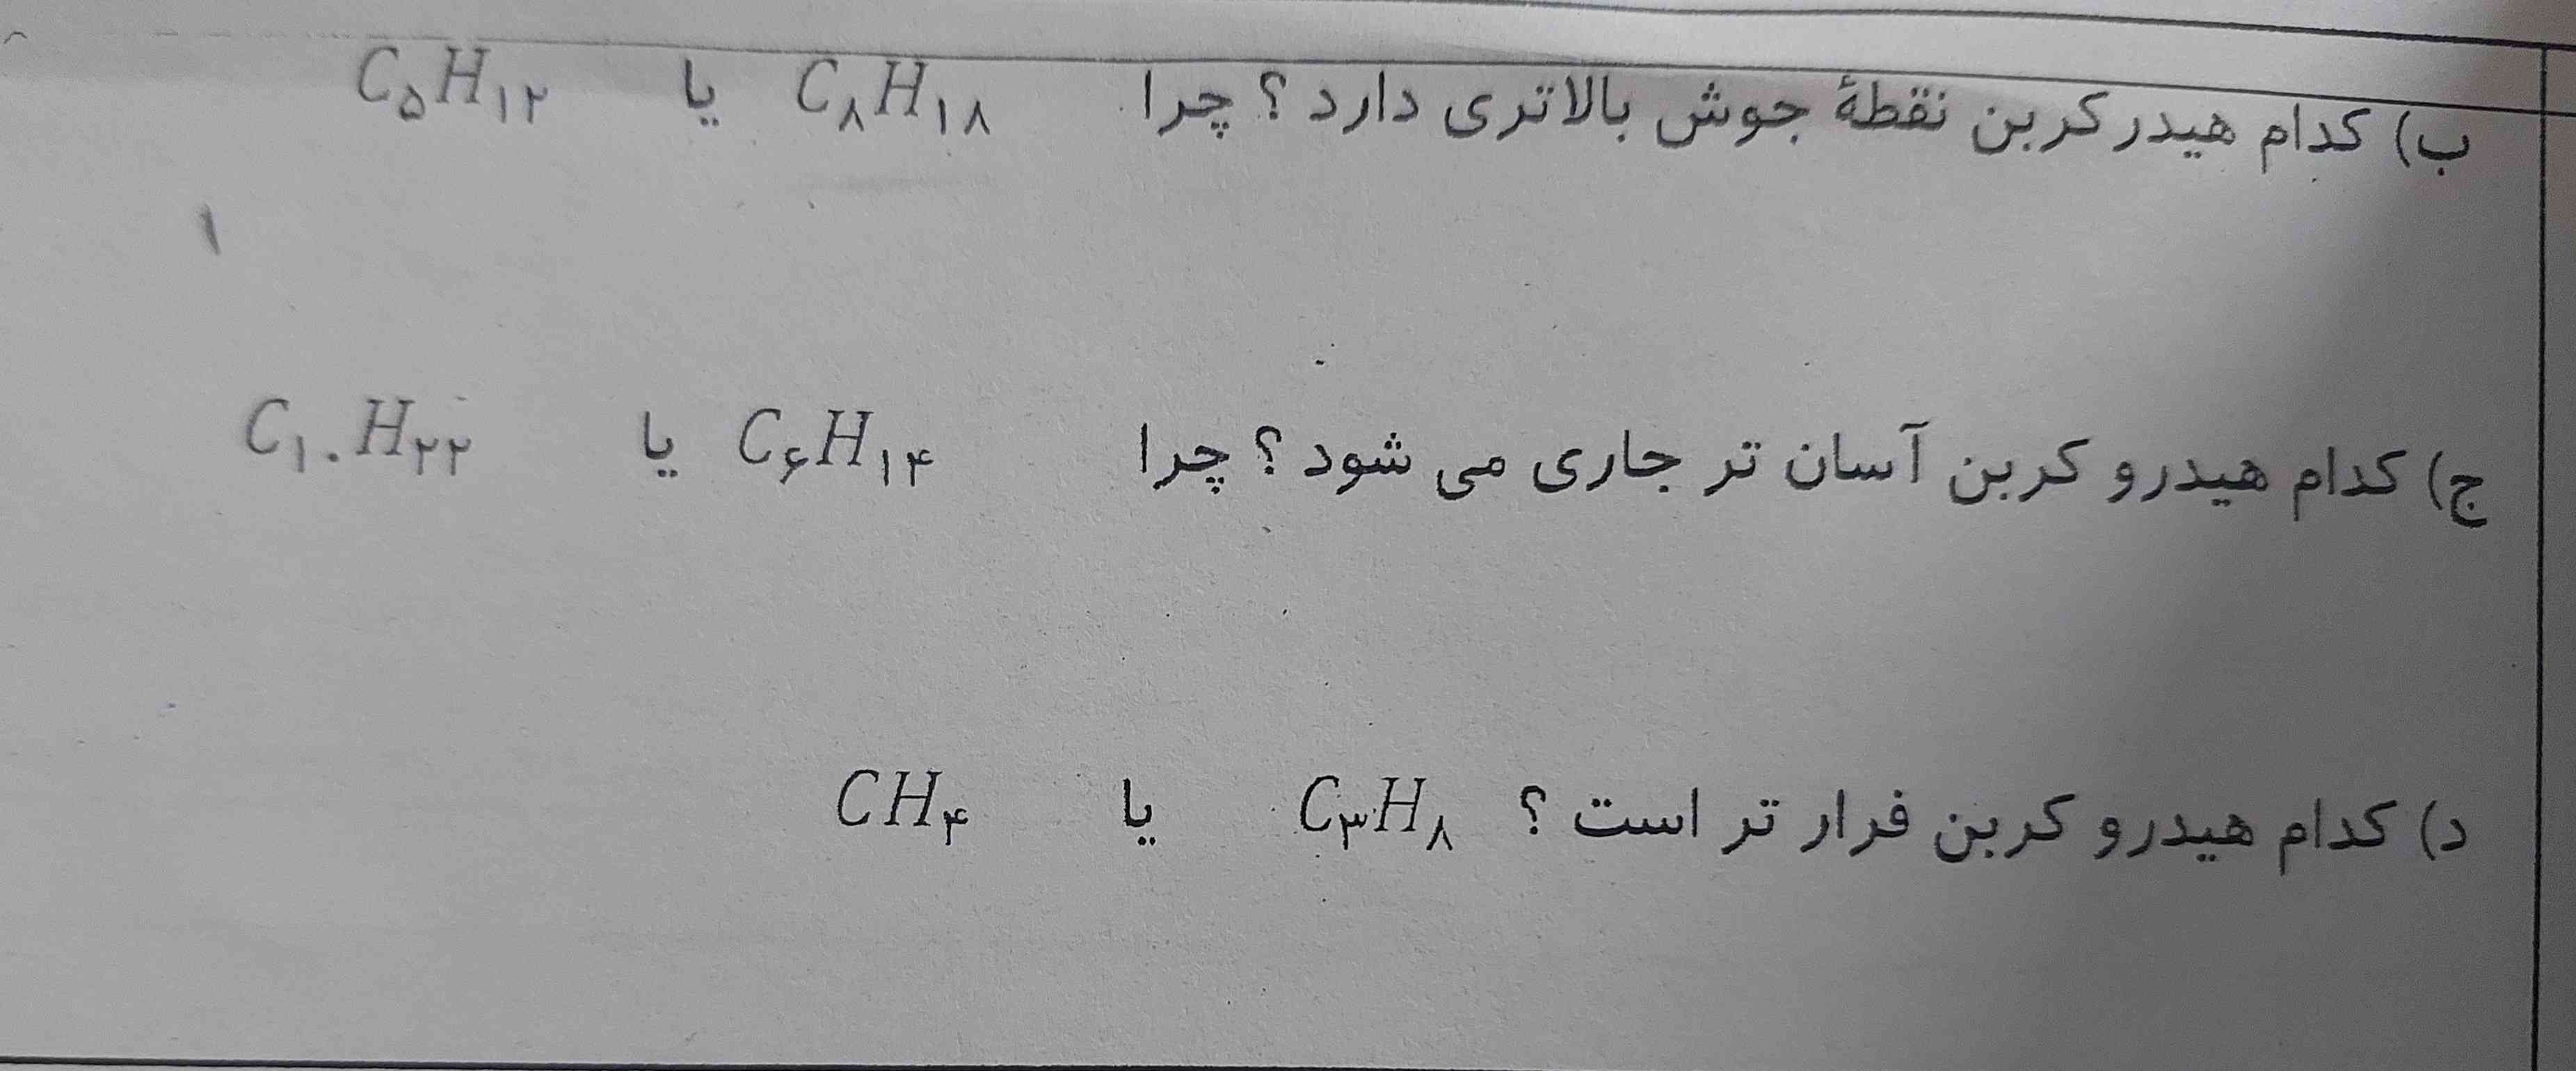 ب) کدام هیدرکربن نقطهٔ جوش بالاتری دارد ؟ چرا C₈H₁₈ یا C₅H₁₂
۱
ج) کدام هیدرو کربن آسان تر جاری می شود ؟ چرا C۶H۱۴ یا C۱۰H۲۲
د) کدام هیدرو کربن فرار تر است ؟ C۳H۸ یا CH۴